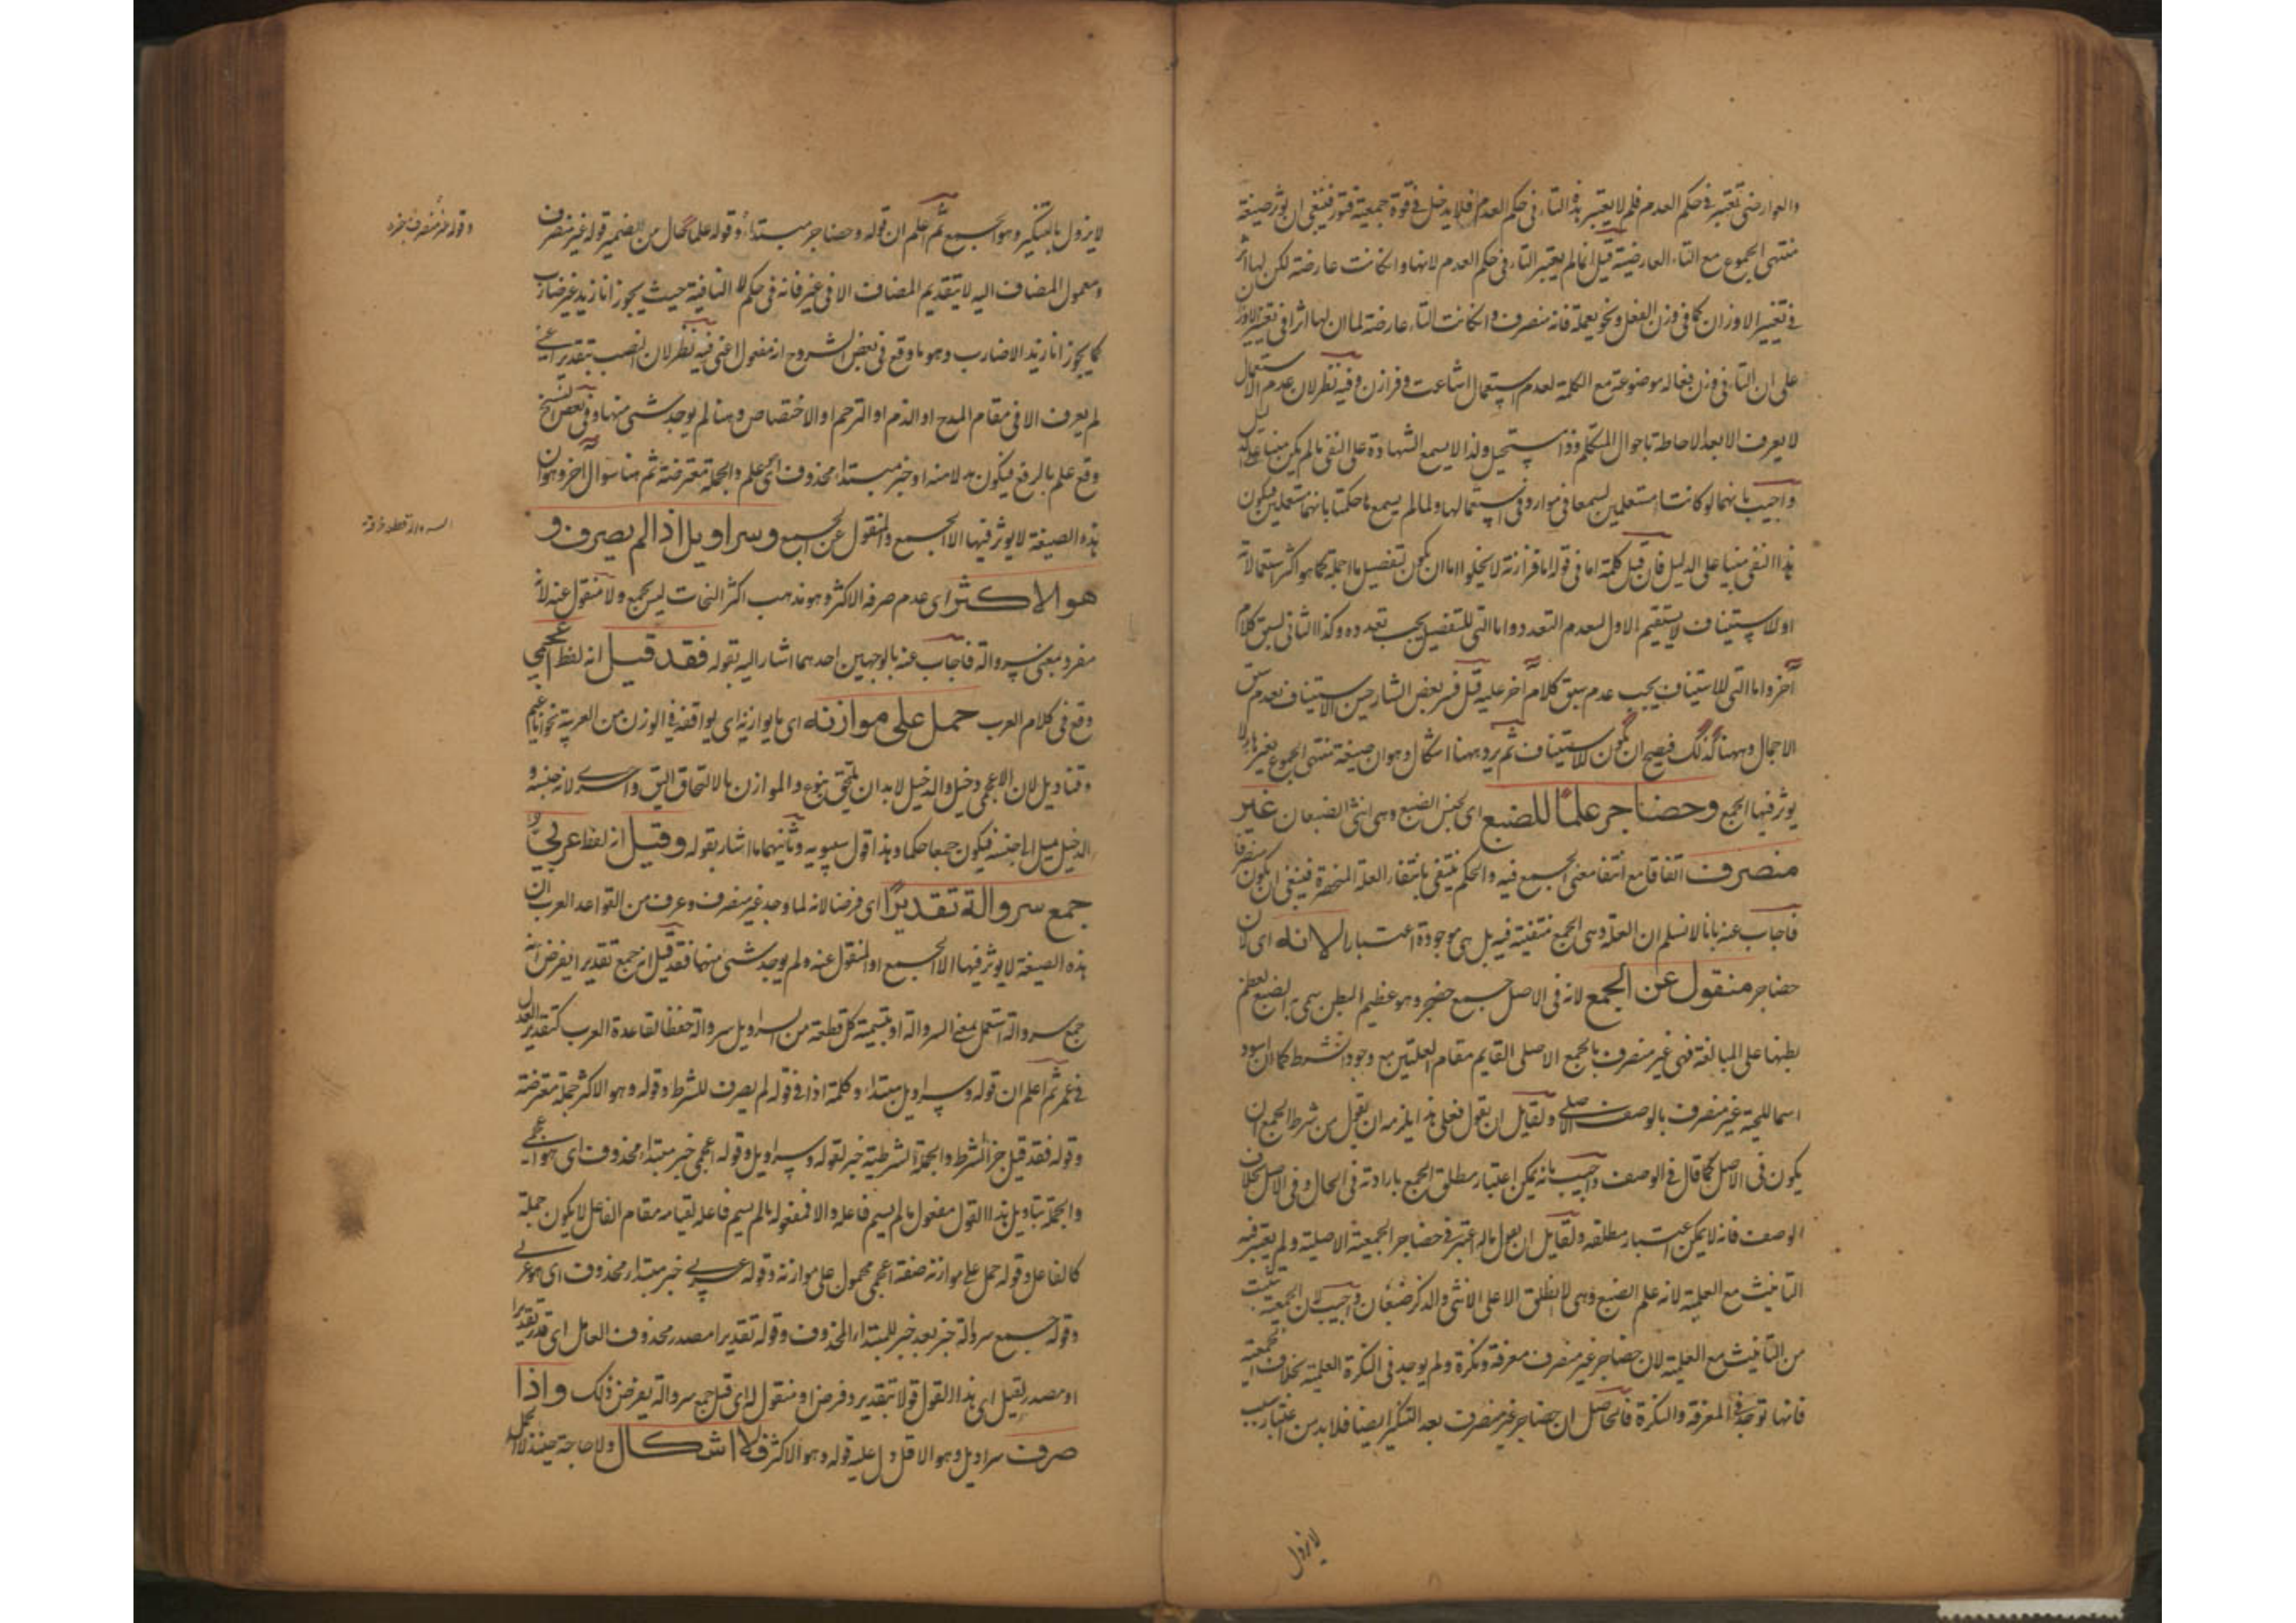 والعوارض تعتبر في حكم العدم فلم لا يعتبر هذه التاء في حكم العدم فلا يدخل في قوة جمعيته فتور فينبغي ان يوثر صيغة
منتهى الجموع مع التاء العارضية قيل انما لم يعتبر التاء في حكم العدم لانها وان كانت عارضة لكن لها اثر
في تغيير الاوزان كما في وزن الفعل ونحو يعملة فانه منصرف وان كانت التاء عارضة لما ان لها اثرا في تغيير الاوزان
على ان التاء في وزن فعالة موضوعة مع الكلمة لعدم استعمال اشاعث وفرازن وفيه نظر لان عدم الاستعمال
لا يعرف الا بعد الاحاطة باحوال المتكلم وذا مستحيل ولذا لا يسمع الشهادة على النفي ما لم يكن مبنيا على دليل
واجيب بانهما لو كانتا مستعملين لسمعا في موارد في استعمالها ولما لم يسمع ما حكمنا بانهما مستعملين فيكون
هذا النفي مبنيا على الدليل فان قيل كلمة اما في قوله اما فرازنة لا يخلو اما ان يكون لتفصيل ما اجمله كما هو اكثر استعمالاته
او لاستيناف لا يستقيم الاول لعدم التعدد واما التي للتفصيل يجب تعدده وكذا الثاني لسبق كلام
آخر واما التي للاستيناف يجب عدم سبق كلام آخر عليه قيل فسر بعض الشارحين الاستيناف بعدم سبق
الاجمال وههنا كذلك فيصح ان يكون للاستيناف ثم يرد ههنا اشكال وهو ان صيغة منتهى الجموع بغير هاء لا
يوثر فيها الجمع وحضاجر علما للضبع اي لجنس الضبع وهي انثى الضبعان غير
منصرف اتفاقا مع انتفاء معنى الجمع فيه والحكم ينتفي بانتفاء العلة المنحصرة فينبغي ان يكون منصرفا
فاجاب عنه بانا لا نسلم ان العلة وهي الجمع منتفية فيه بل هي موجودة اعتبارا لانه اي لان
حضاجر منقول عن الجمع لانه في الاصل جمع حضجر وهو عظيم البطن سمي به الضبع لعظم
بطنها على المبالغة فهي غير منصرف بالجمع الاصلي القايم مقام العلتين مع وجود الشرط كما ان اسود
اسما للحية غير منصرف بالوصف الاصلي ولقايل ان يقول فعلى هذا يلزمه ان يقول من شرط الجمع ان
يكون في الاصل كما قال في الوصف واجيب بانه يمكن اعتبار مطلق الجمع بارادته في الحال وفي الاصل بخلاف
الوصف فانه لا يمكن اعتبار مطلقه ولقايل ان يقول ما له اعتبر في حضاجر الجمعية الاصلية ولم يعتبر فيه
التانيث مع العلمية لانه علم الضبع وهي لا يطلق الا على الانثى والذكر ضبعان واجيب لان الجمعية
من التانيث مع العلمية لان حضاجر غير منصرف معرفة ونكرة ولم يوجد في النكرة العلمية بخلاف الجمعية
فانها توجد في المعرفة والنكرة فالحاصل ان حضاجر غير منصرف بعد التنكير ايضا فلا بد من اعتبار سبب
لا يزول
لا يزول بالتنكير وهو الجمع ثم اعلم ان قوله وحضاجر مبتداء وقوله علما حال من الضمير قوله غير منصرف
ومعمول المضاف اليه لا يتقدم المضاف الا في غير فانه في حكم لا النافية حيث يجوز انا زيدا غير ضارب
كما يجوز انا زيدا لا ضارب وهو ما وقع في بعض الشروح انه مفعول اعني فيه نظر لان النصب بتقدير اعني
لم يعرف الا في مقام المدح او الذم او الترحم او الاختصاص وهنا لم يوجد شيء منها وفي بعض النسخ
وقع علم بالرفع فيكون بدلا منه او خبر مبتداء محذوف اي علم والجملة معترضة ثم هنا سوال آخر وهو ان
هذه الصيغة لا يوثر فيها الا الجمع والمنقول عن الجمع وسراويل اذا لم يصرف و
هو الاكثر اي عدم صرفه الاكثر وهو مذهب اكثر النحات ليس بجمع ولا منقول عنه لانه
مفرد بمعنى سروالة فاجاب عنه بالوجهين احدهما اشار اليه بقوله فقد قيل انه لفظ اعجمي
وقع في كلام العرب حمل على موازنه اي ما يوازنه اي يوافقه في الوزن من العربية نحو اناعيم
وقناديل لان الاعجمي دخيل والدخيل لابد ان يلتحق بنوع والموازن بالالتحاق اليق واحرى لانه جنسه و
الدخيل ميل الى جنسه فيكون جمعا حكما وهذا قول سيبويه وثانيهما ما اشار بقوله وقيل انه لفظ عربي
جمع سروالة تقديرا اي فرضا لانه لما وجد غير منصرف وعرف من القواعد العرب ان
هذه الصيغة لا يوثر فيها الا الجمع او المنقول عنه ولم يوجد شيء منها فقد قيل انه جمع تقديرا يفرض انه
جمع سروالة استعمل بمعنى السروالة او بتسمية كل قطعة من السراويل سروالة حفظا لقاعدة العرب كتقدير العدل
في عمر ثم اعلم ان قوله وسراويل مبتداء وكلمة اذا في قوله لم يصرف للشرط وقوله وهو الاكثر جملة معترضة
وقوله فقد قيل جزاء الشرط والجملة الشرطية خبر لقوله وسراويل وقوله اعجمي خبر مبتداء محذوف اي هو اعجمي
والجملة بتاويل هذا القول مفعول ما لم يسم فاعله والا فمفعول ما لم يسم فاعله لقيامه مقام الفاعل لا يكون جملة
كالفاعل وقوله حمل على موازنه صفة اعجمي محمول على موازنه وقوله عربي خبر مبتداء محذوف اي هو عربي
وقوله جمع سروالة خبر بعد خبر للمبتداء المحذوف وقوله تقديرا مصدر محذوف العامل اي قدر تقديرا
او مصدر لقيل اي هذا القول قولا بتقدير وفرض او منقول له اي قيل جمع سروالة بفرض ذلك واذا
صرف سراويل وهو الاقل دل عليه قوله وهو الاكثر فلا اشكال ولا حاجة حينئذ لا الى